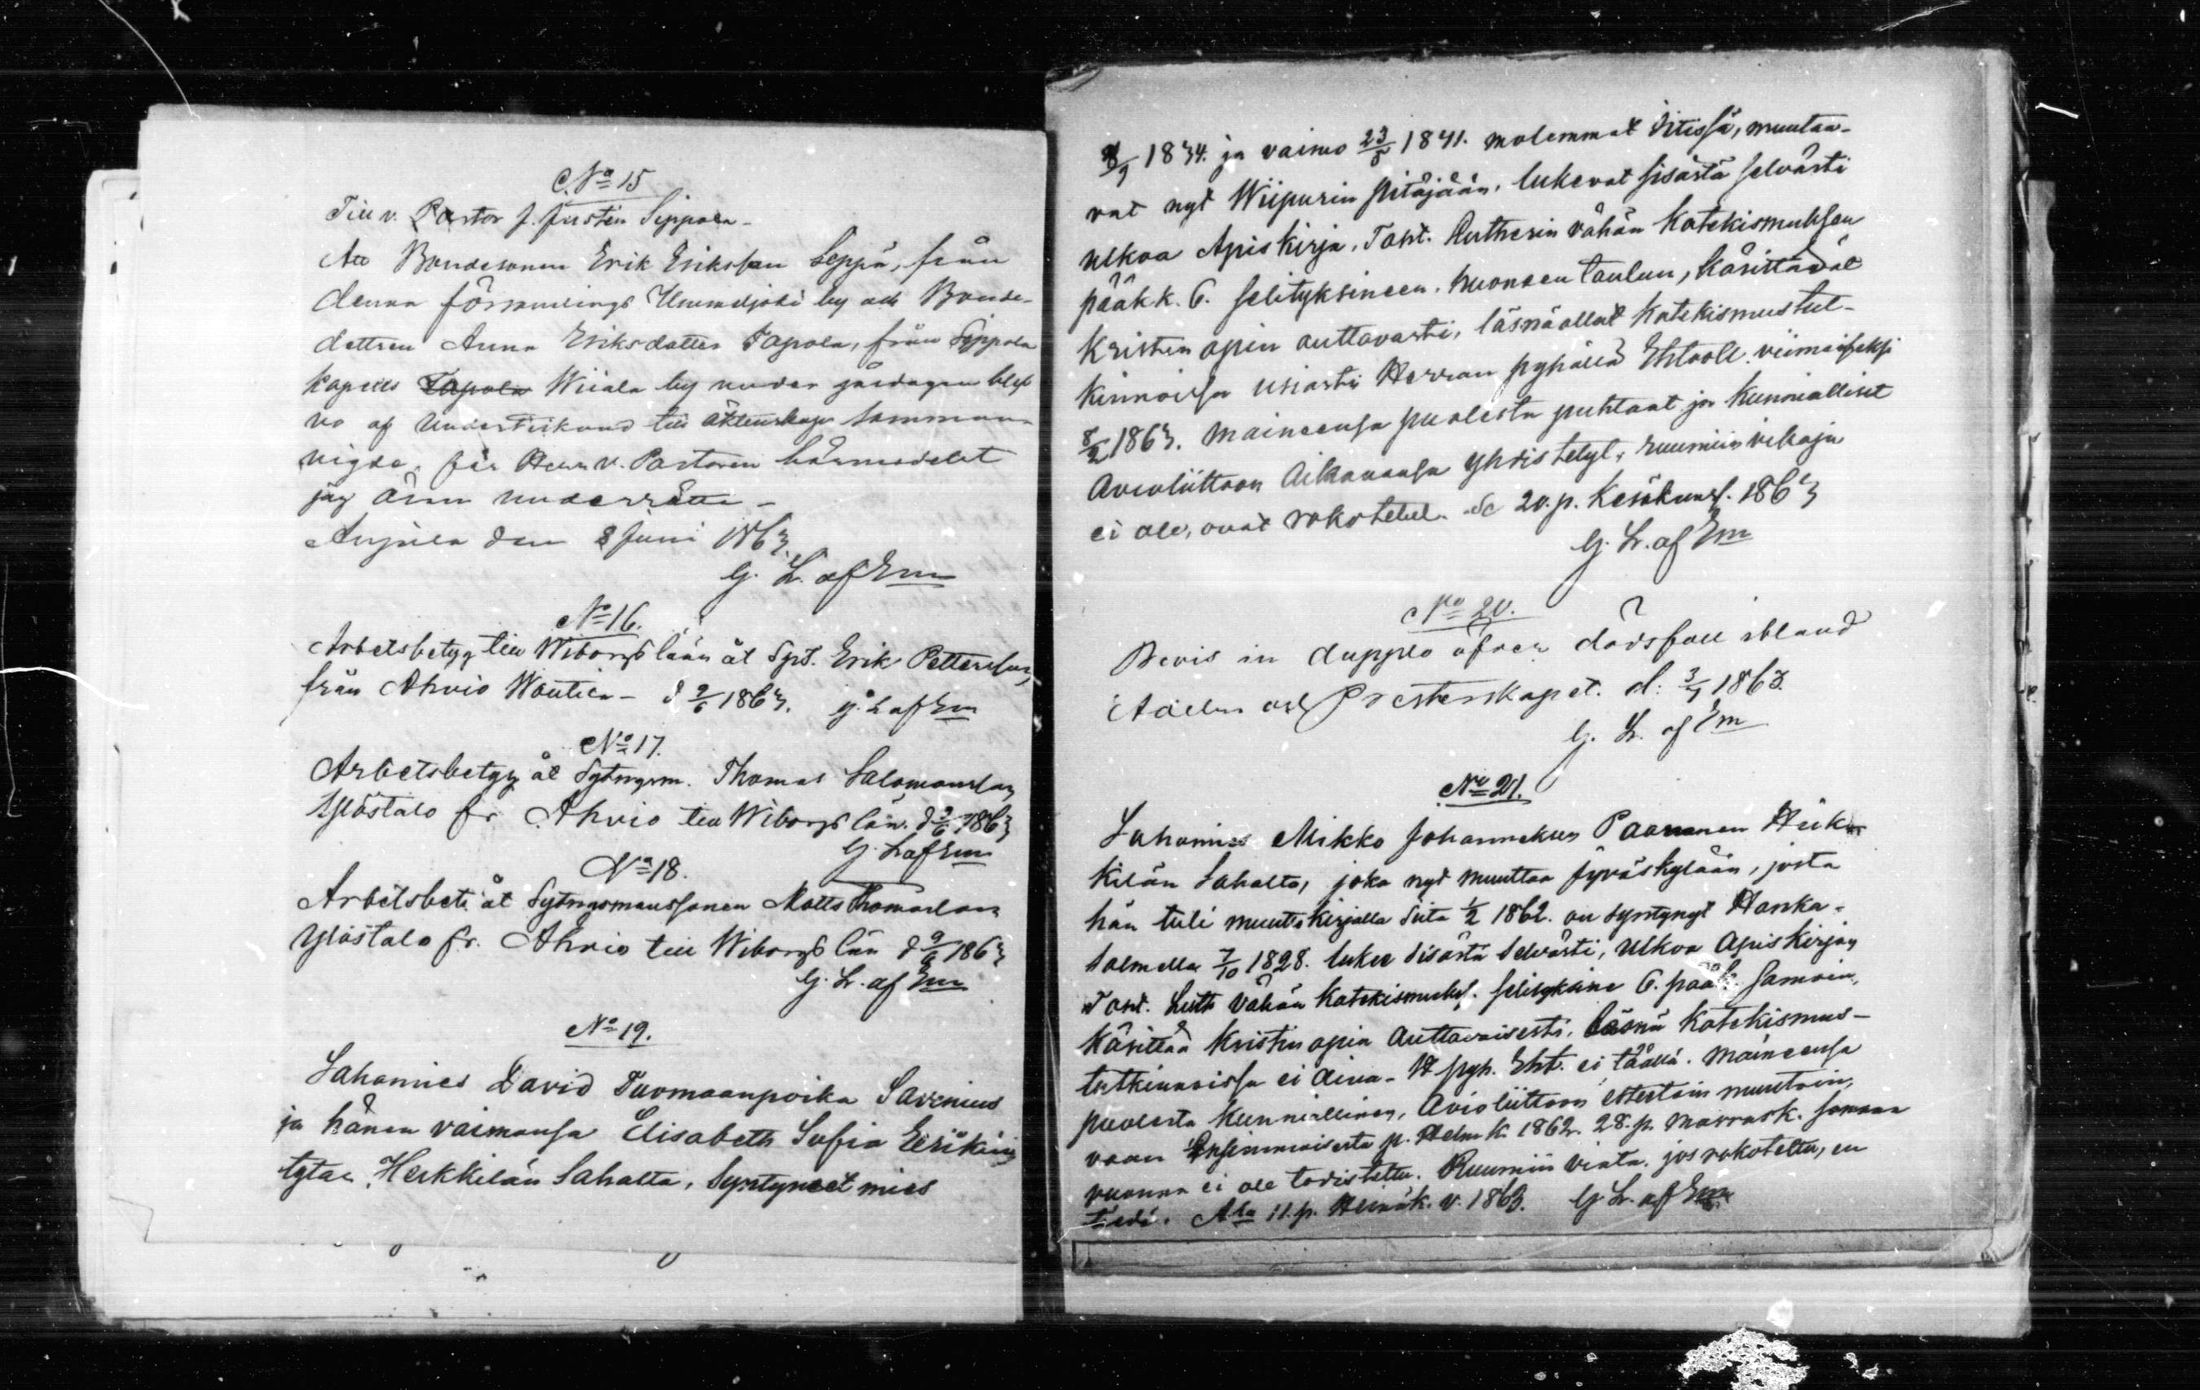 No 15
Till v. Pastor J. Justin Sippola.
Att Bondesonen Erik Eriksson Seppä, från
denna församlings Ummeljoki by och Bonde-
dottren Anna Eriksdotter Tapola, från Sippola
kapells Tapola Wiiala by under gårdagen blef
vo af undertecknad till äktenskap samman-
vigde, får Herr v. Pastoren härmedelst
jag äran underrätta -
Anjala den 8 Juni 1863
G. L. af Em
No 16.
Arbetsbetyg till Wiborgs län åt Erik Pettersson,
från Ahvio Woutila - d 9/6 1863. G. L. af Em
No 17.
Arbetsbetyg åt Sytngsm. Thomas Salomonsson
Yläs­talo fr. Ahvio till Wiborgs län. d 9/6 1863
G. L. af Em
No 18.
Arbetsbet. åt Sytngsmanssonen Matts Thomasson
Yläs­talo fr. Ahvio till Wiborgs län d 9/6 1863
G. L. af Em
No 19.
Sahamies David Tuomaanpoika Savenius
ja hänen vaimonsa Elisabeth Sofia Eerikin
tytär Heikkilän Sahalta, Syntyneet mies
1834. ja vaimo 23/5 1841. molemmat Iitissä, muutaa-
vat nyt Wiipurin pitäjään, lukevat sisästä selvästi
ulkoa Apiskirja, Toht. Lutherin vähän Katekismuksen
pääkk. 6. selityksineen. huoneen taulun, käsittävät
Kristin opin auttavasti, läsnäollut Katekismustut-
kinnoissa usiasti Herran pyhällä Ehtooll. viimaiseksi
8/2 1863. Maineensa puolesta puhtaat ja kunnialliset
Avioliittoon Aikanansa yhdistetyt, ruumiin vikoja
ei ole, ovat rokotetut. Se 20. p. Kesäkuus. 1863
G. L. af Em
No 20.
Bevis in dupplo öfver dödsfall ibland
Adeln och Presterskapet. d: 3/7 1863.
G. L. af Em
No 21.
Sahamies Mikko Johanneksen Paananen Heik-
kilän Sahalta, joka nyt muuttaa Jyväskylään, josta
hän tuli muutokirjalla Siitä 1/2 1862. on syntynyt Hanka-
salmella 7/10 1828. lukee sisästä selvästi, ulkoa Apiskirjan
Toht. Luth vähän Katekismuks. selityksine 6. pääk. samoin,
käsittää Kristin opin Auttavaisesti. läsnä Katekismus-
tutkinnoissa ei aina. H pyh. Eht. ei täällä. Maineensa
puolesta kunniallinen, Avioliittoon estettöin muutoin,
vaan Ensimmäisestä p. Helm k. 1862. 28. p. Marrask. samaa
vuonna ei ole todistettu. Ruumiin viata. jos rokotettu, en
tiedä. 11. p. Heinäk. v. 1863. G. L. af Em